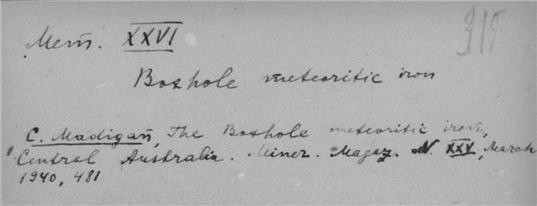 Mem. XXVI
315
Boxhole meteoritic iron
C. Madigan, The Boxhole meteoritic iron,
Central Australia. Miner. Magaz. N. XXV, March
1940, 481